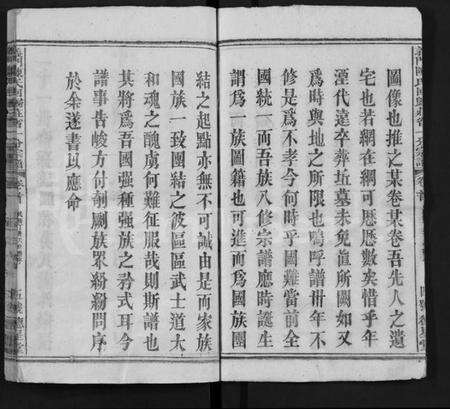 圖像也推之某卷某卷吾先人之遺
宅也若綱在綱可歷歷數矣惜乎年
湮代遠卒葬坵墓未免直所闕如又
為時與地之所限也嗚呼譜卅年不
修是為不孝今何時乎國難當前全
國統一而吾族八修宗譜應時誕生
謂為一族圖籍也可進而為國族團
結之起點亦無不可誠由是而家族
國族一致團結之彼區區武士道大
和魂之醜虜何難征服哉則斯譜也
其將為吾國強種強族之矜式耳今
譜事告峻方付剞劂族眾紛紛問序
於余遂書以應命